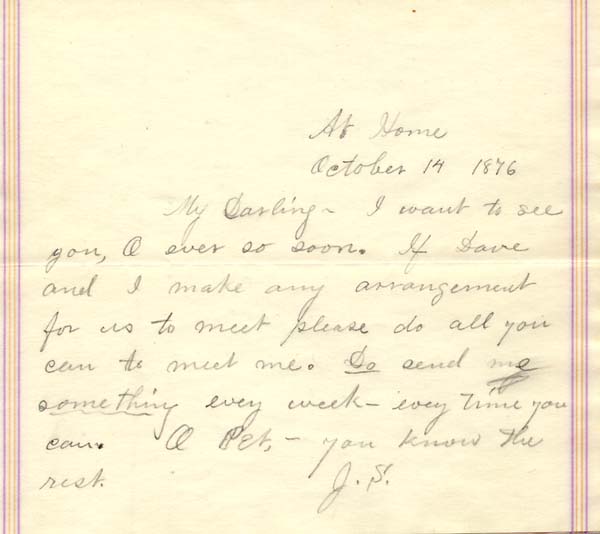 At Home
October 14 1876
My Darling - I want to see
you, O ever so soon. If Dave
and I make any arrangement
for us to meet please do all you
can to meet me. Do send me
something every week - every time you
can. O Pet, - you know the
rest. J. S.